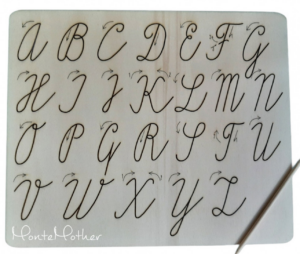 A B C D E F G
H I J K L M N
O P Q R S T U
V W X Y Z
MonteMother